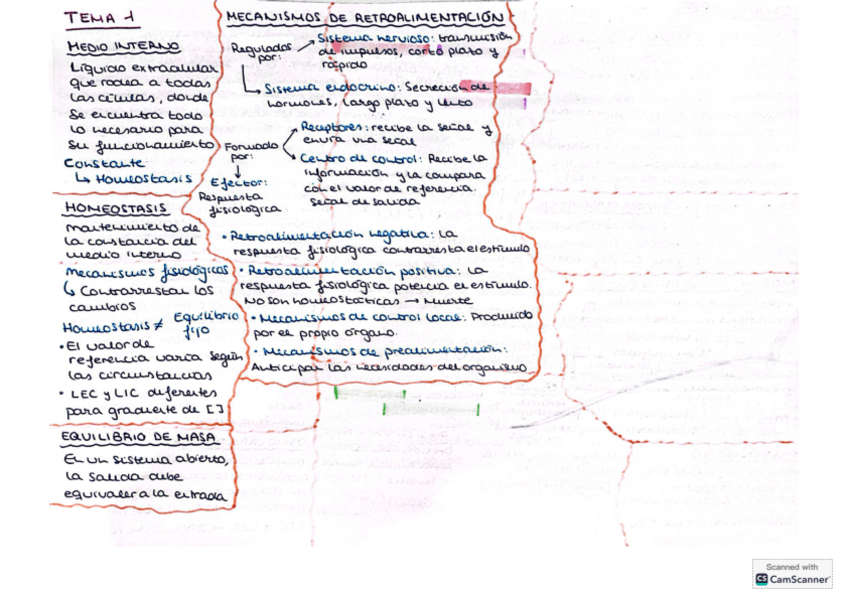 TEMA 1
MEDIO INTERNO
Líquido extracelular
que rodea a todas
las células, donde
se encuentra todo
lo necesario para
su funcionamiento
Constante
↳ Homeostasis
HOMEOSTASIS
mantenimiento de
la constancia del
medio interno
Mecanismos fisiológicos
↳ Contrarrestan los
cambios
Homeostasis ≠ Equilibrio
fijo
• El valor de
referencia varía según
las circunstancias
• LEC y LIC diferentes
para gradiente de []
EQUILIBRIO DE MASA
En un sistema abierto,
la salida debe
equivaler a la entrada
MECANISMOS DE RETROALIMENTACIÓN
Regulados
por:
Sistema nervioso: transmisión
de impulsos, corto plazo y
rápido
Sistema endocrino: Secreción de
hormonas, largo plazo y lento
Formado
por:
Receptores: recibe la señal y
envía una señal
Centro de control: Recibe la
información y la compara
con el valor de referencia.
Señal de salida
Efector:
Respuesta
fisiológica
• Retroalimentación negativa: la
respuesta fisiológica contrarresta el estímulo
• Retroalimentación positiva: la
respuesta fisiológica potencia el estímulo.
No son homeostáticas → Muerte
• Mecanismos de control local: Producido
por el propio órgano.
• Mecanismos de prealimentación:
Anticipar las necesidades del organismo
Scanned with
CS CamScanner